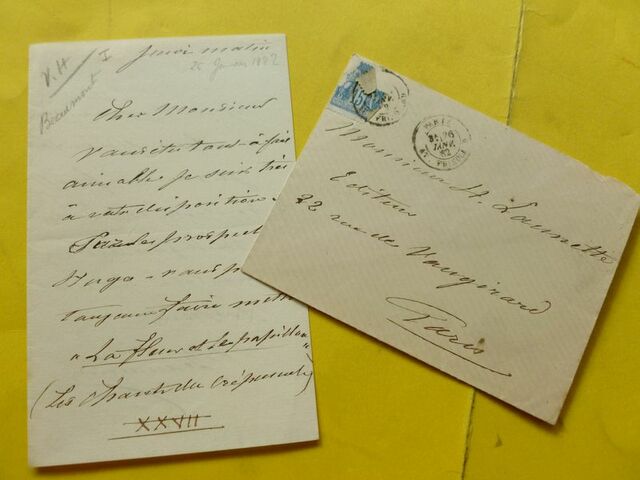 V.H I
Beaumont
Jeudi matin
26 Janvier 1882
Cher Monsieur
Vous êtes tout à fait
aimable Je suis très
à votre disposition
les prospect
Hugo - vous p
toujours faire mett
"La fleur et le papillon"
(Les chants du crépuscule)
XXVII
15
PARIS
26
JANV
82
Monsieur H. Launette
Editeur
22 rue de Vaugirard
Paris